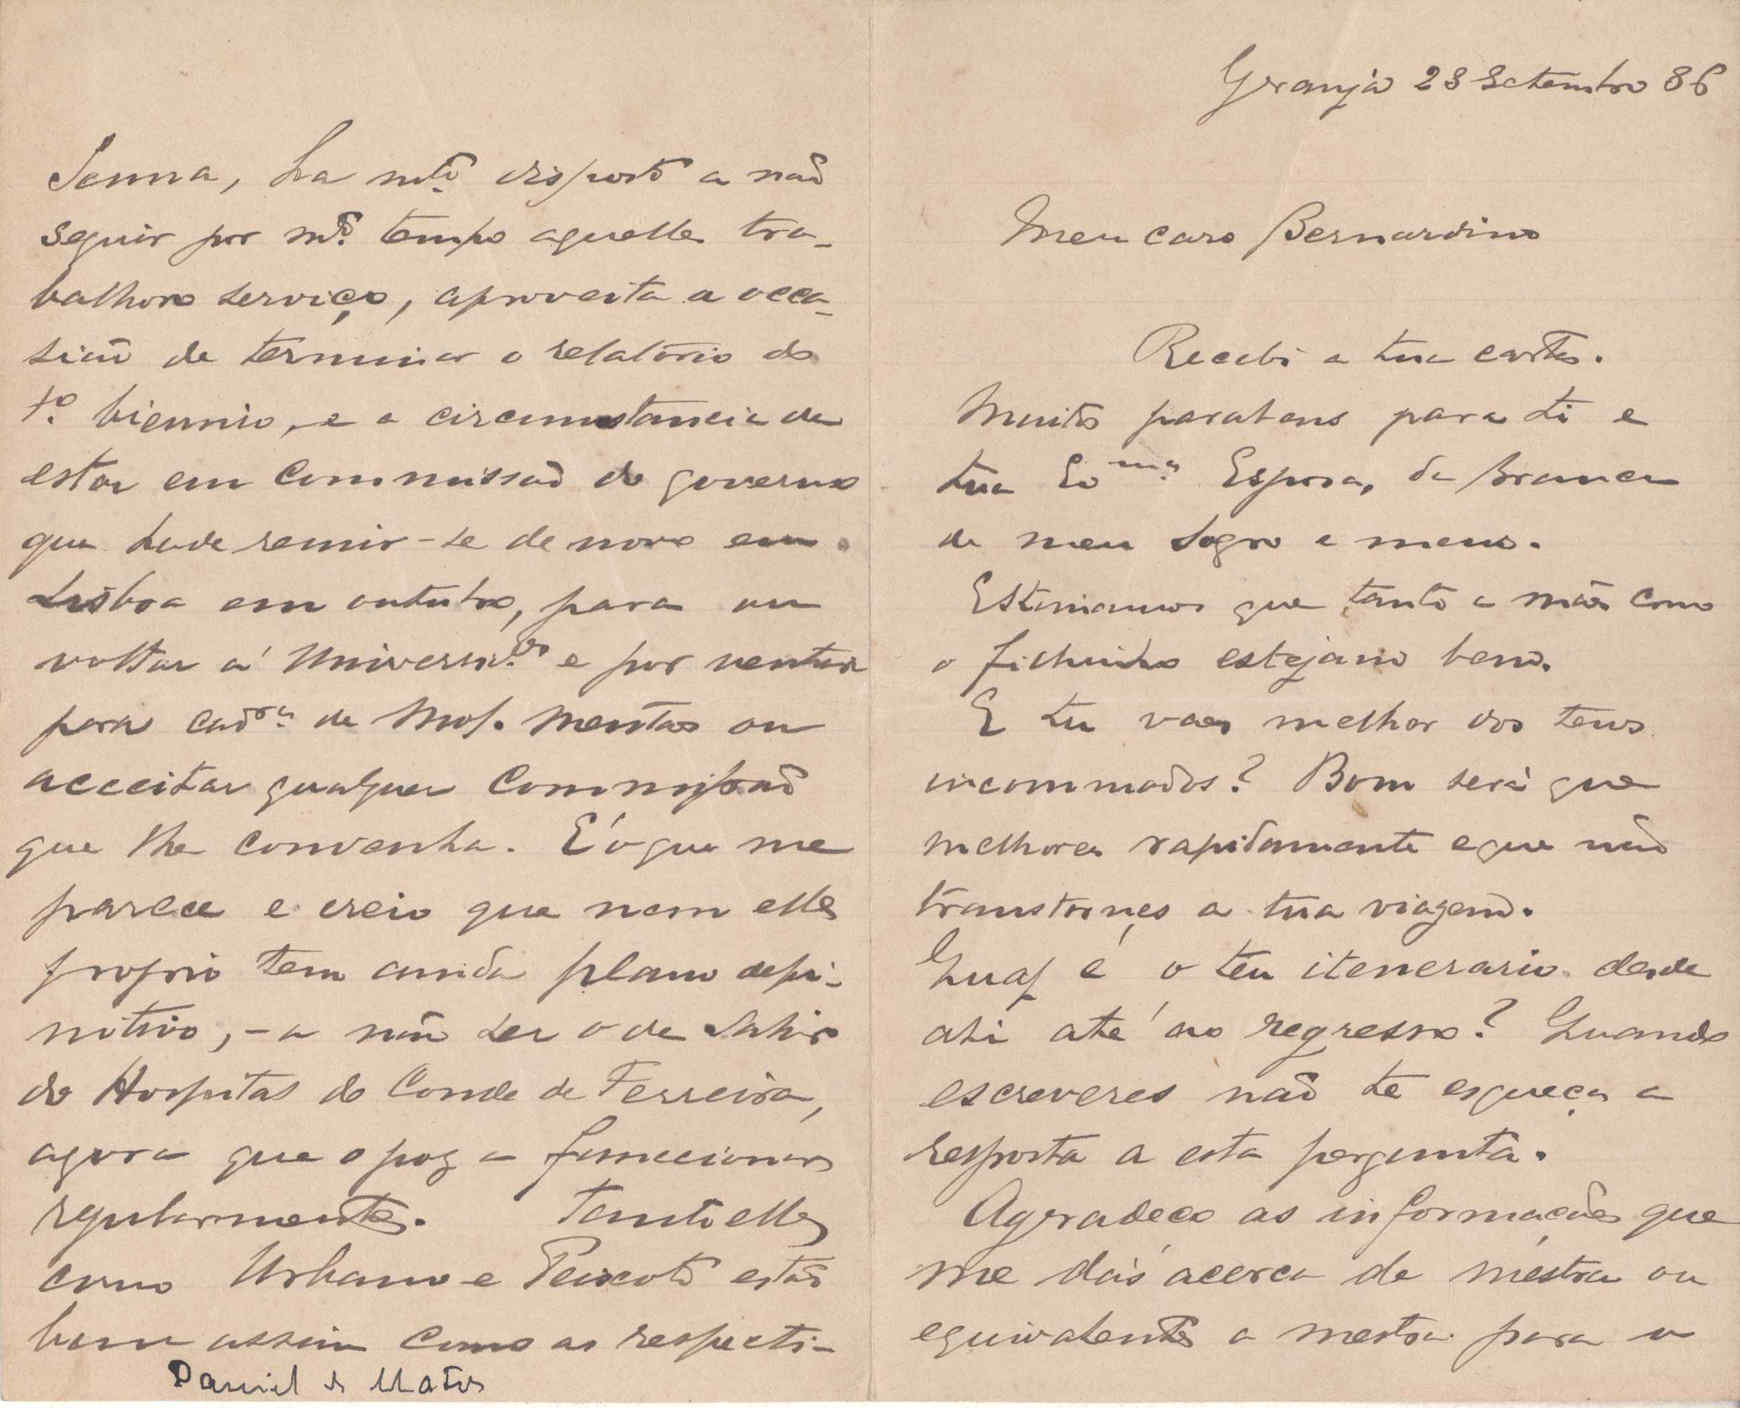 Granja 28 Setembro 86
Meu caro Bernardino
Recebi a tua carta.
Muitos parabens para ti e
tua Ex.ma Esposa, da Branca
de meu sogro e meus.
Estimamos que tanto a mãe como
o filhinho estejam bem.
E tu vaes melhor dos teus
incommodos? Bom será que
melhores rapidamente e que não
transtornes a tua viagem.
Qual é o teu itenerario desde
ahi até ao regresso? Quando
escreveres não te esqueça a
resposta a esta pergunta.
Agradeço as informações que
me dás acerca de mestra ou
equivalente a mestra para o
Senna, ha mto. disposto a não
seguir por mto. tempo aquelle tra-
balhoso serviço, aproveita a occa-
sião de terminar o relatorio do
1.º biennio, e a circumstancia de
estar em commissão do governo
que hade reunir-se de novo em
Lisboa em outubro, para ou
voltar á Universid.de e por ventura
para cadra. de Mol. Mentaes ou
acceitar qualquer commissão
que lhe convenha. É o que me
parece e creio que nem elle
proprio tem ainda plano defi-
nitivo, - a não ser o de sahir
do Hospital do Conde de Ferreira,
agora que o poz a funccionar
regularmente. Tanto elle
como Urbano e Peixoto estão
bem assim como as respecti-
Daniel de Matos